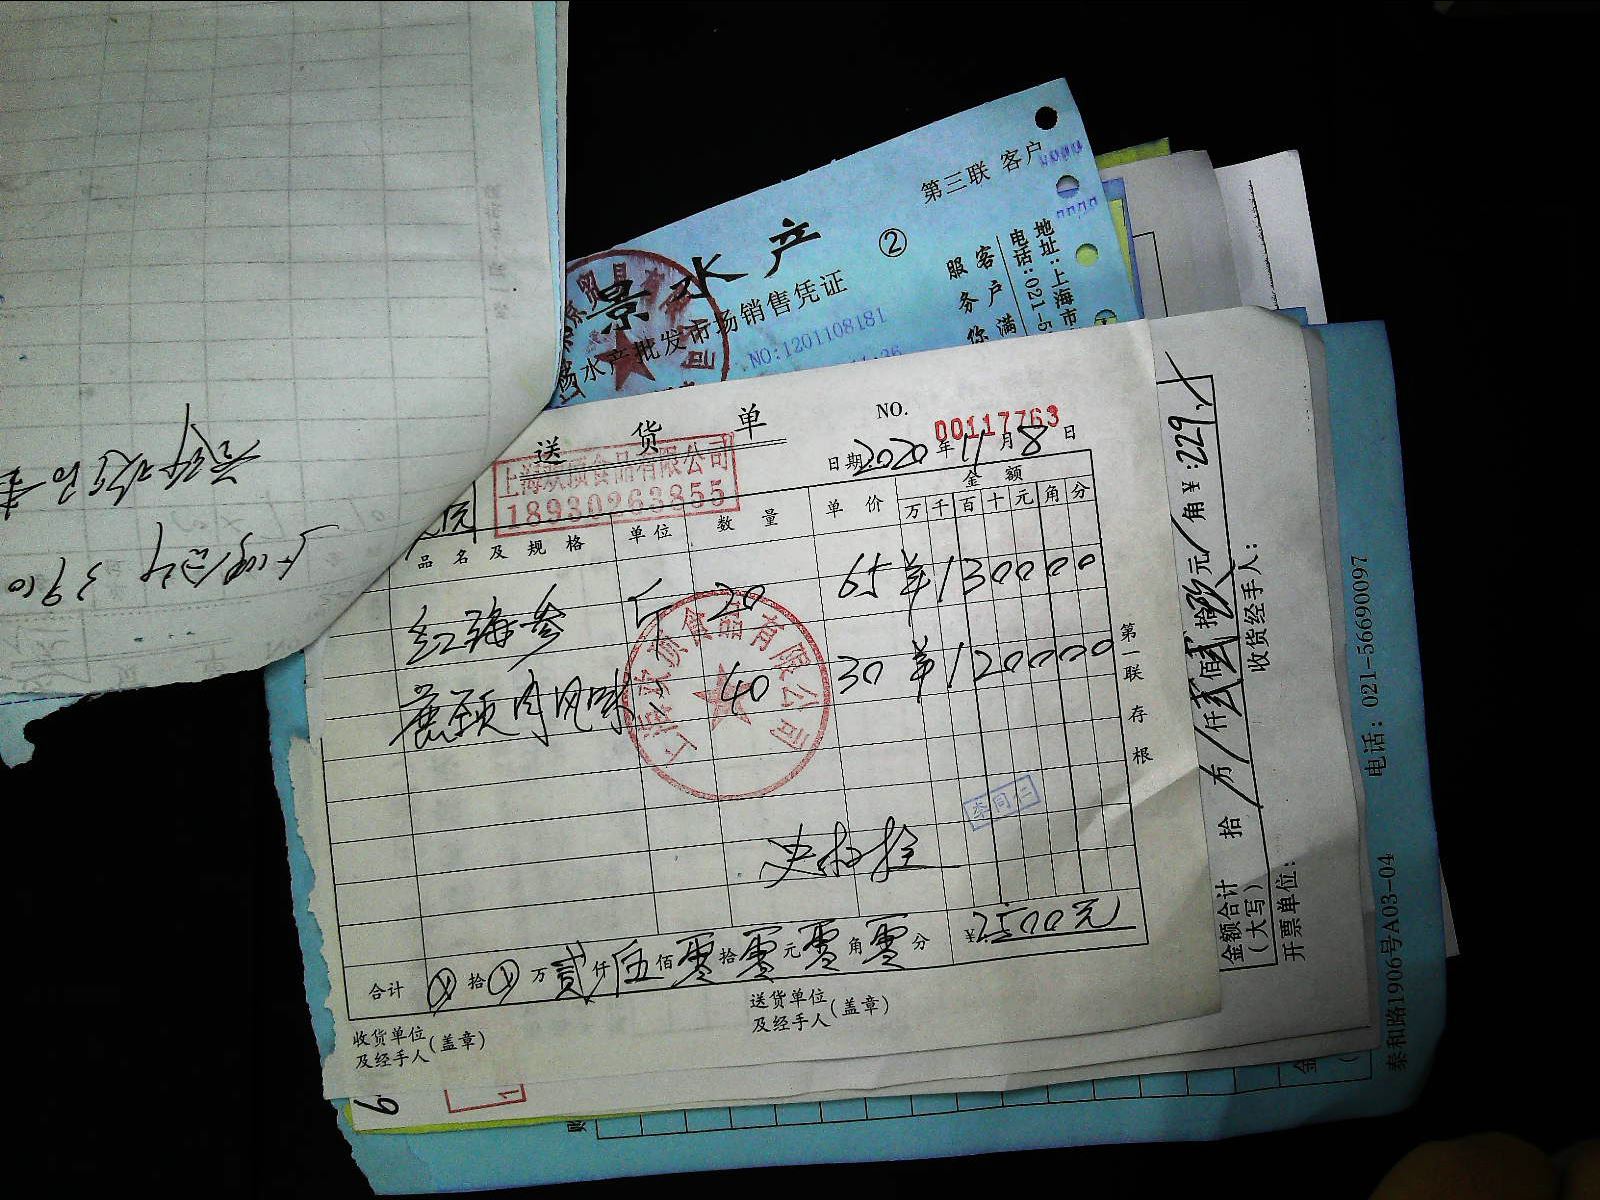 第三联 客户
景水产 ②
杨水产批发市场销售凭证
NO:1201108181
地址:上海市
电话:021-5
客户满
服务你
送货单
NO. 00117763
上海欢顶食品有限公司
18930263855
日期 2020 年 11 月 8 日
品名及规格 单位 数量 单价 金额
万 千 百 十 元 角 分
红海参 斤 20 65 130000
40 30 120000
上海欢顶食品有限公司
第一联 存根
李同仁
合计 拾 万 贰 仟 伍 佰 零 拾 零 元 零 角 零 分 ¥2500元
收货单位及经手人(盖章)
送货单位及经手人(盖章)
金额合计(大写) 拾 万 仟 贰 佰 贰 拾 玖 元 角 ¥:229
开票单位:
收货经手人:
泰和路1906号A03-04 电话:021-56690097
3910
6
1